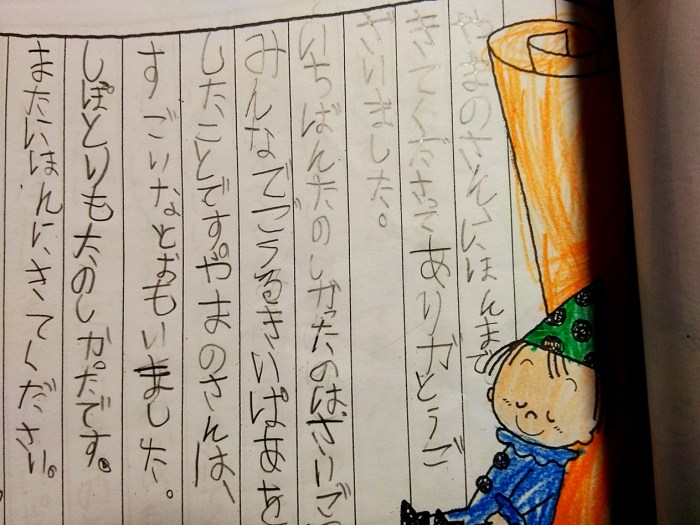 やまのさん、にほんまで
きてくださてありがとうご
ざいました。
いちばんたのしかったのは、さいご
みんなでごうるきいぱあを
したことです。やまのさんは、
すごいなとおもいました。
しぽとりもたのしかたです。
またにほんに、きてください。